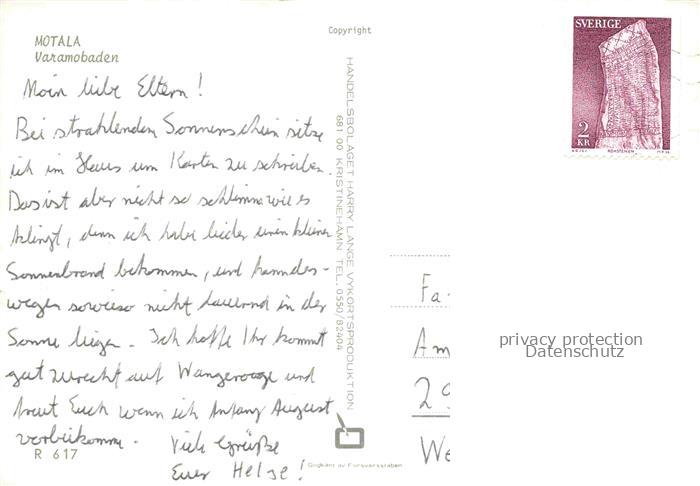 MOTALA
Varamobaden
Copyright
Moin liebe Eltern!
Bei strahlendem Sonnenschein sitze
ich im Haus um Karten zu schreiben.
Das ist aber nicht so schlimm wie es
klingt, denn ich habe leider einen kleinen
Sonnenbrand bekommen, und kann des-
wegen sowieso nicht dauernd in der
Sonne liegen. Ich hoffe Ihr kommt
gut zurecht auf Wangerooge und
freut Euch wenn ich Anfang August
vorbeikomme. Viele Grüße
Euer Helge!
R 617
HANDELSBOLAGET HARRY LANGE VYKORTSPRODUKTION
681 00 KRISTINEHAMN TEL. 0550/82404
Godkänt av Försvarsstaben
SVERIGE
2
KR
RÖKSTENEN
Fa
Am
29
We
privacy protection
Datenschutz